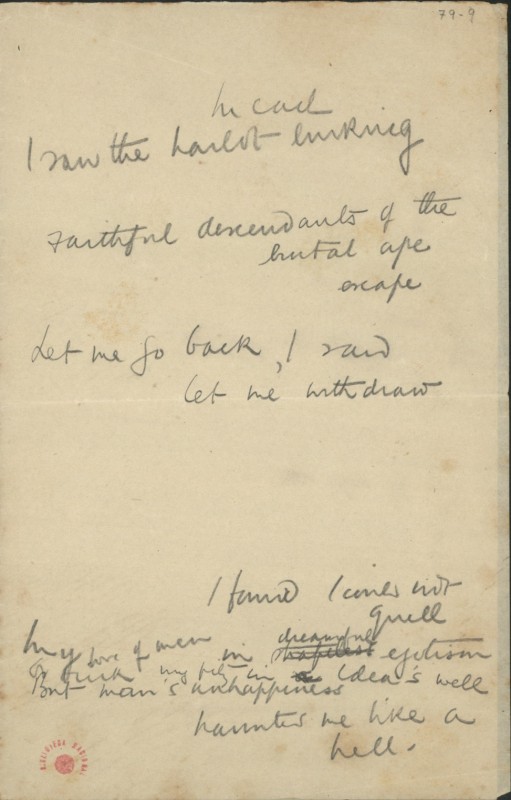 79-9
I saw the harlot lurking
Faithful descendants of the
brutal ape
escape
Let me go back, I said
let me withdraw
I found I could not
quell
My love of men in dreamful shapeless egotism
Or sink my pity in Idea's well
But man's unhappiness
haunted me like a
hell.
BIBLIOTECA NACIONAL